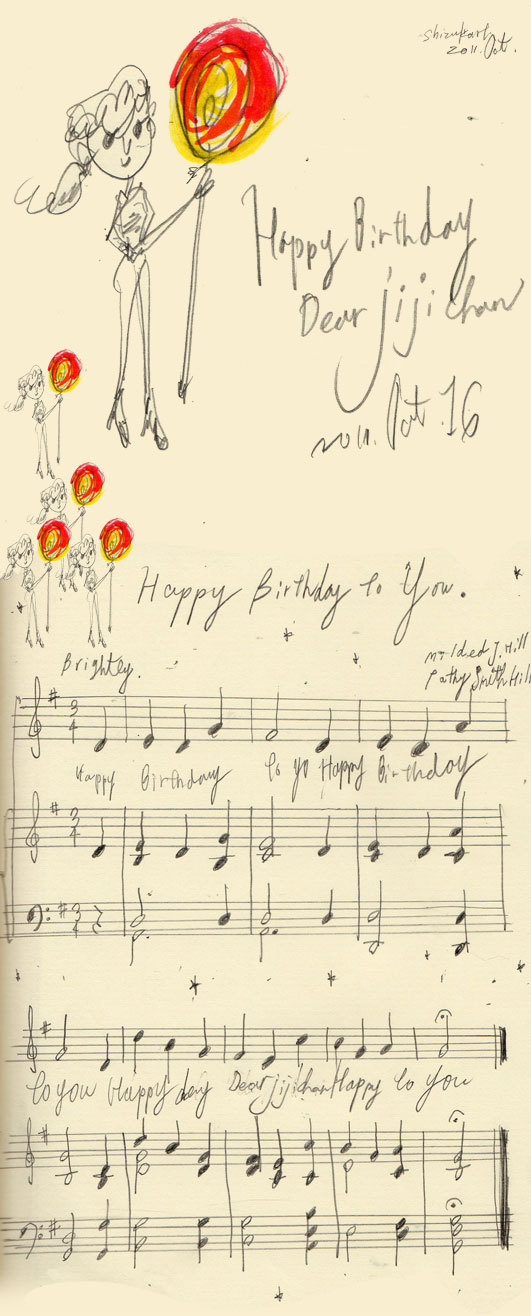 shizukarl
2011. Oct.
Happy Birthday
Dear jiji chan
2011. Oct. 16
Happy Birthday to You.
Brightly.
Mildred J. Hill
Pathy Smith Hill
3
4
Happy Birthday to yo Happy Birthday
3
4
3
4
to you Happy day Dear jiji chan Happy to you